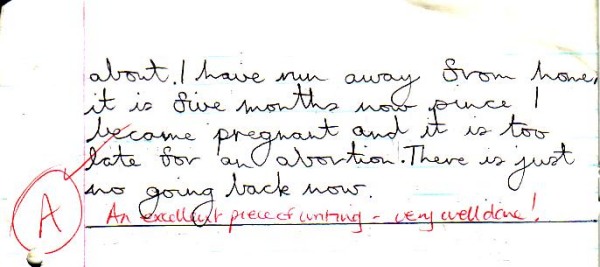 about. I have run away from home,
it is five months now since I
became pregnant and it is too
late for an abortion. There is just
no going back now.
A
An excellent piece of writing - very well done!